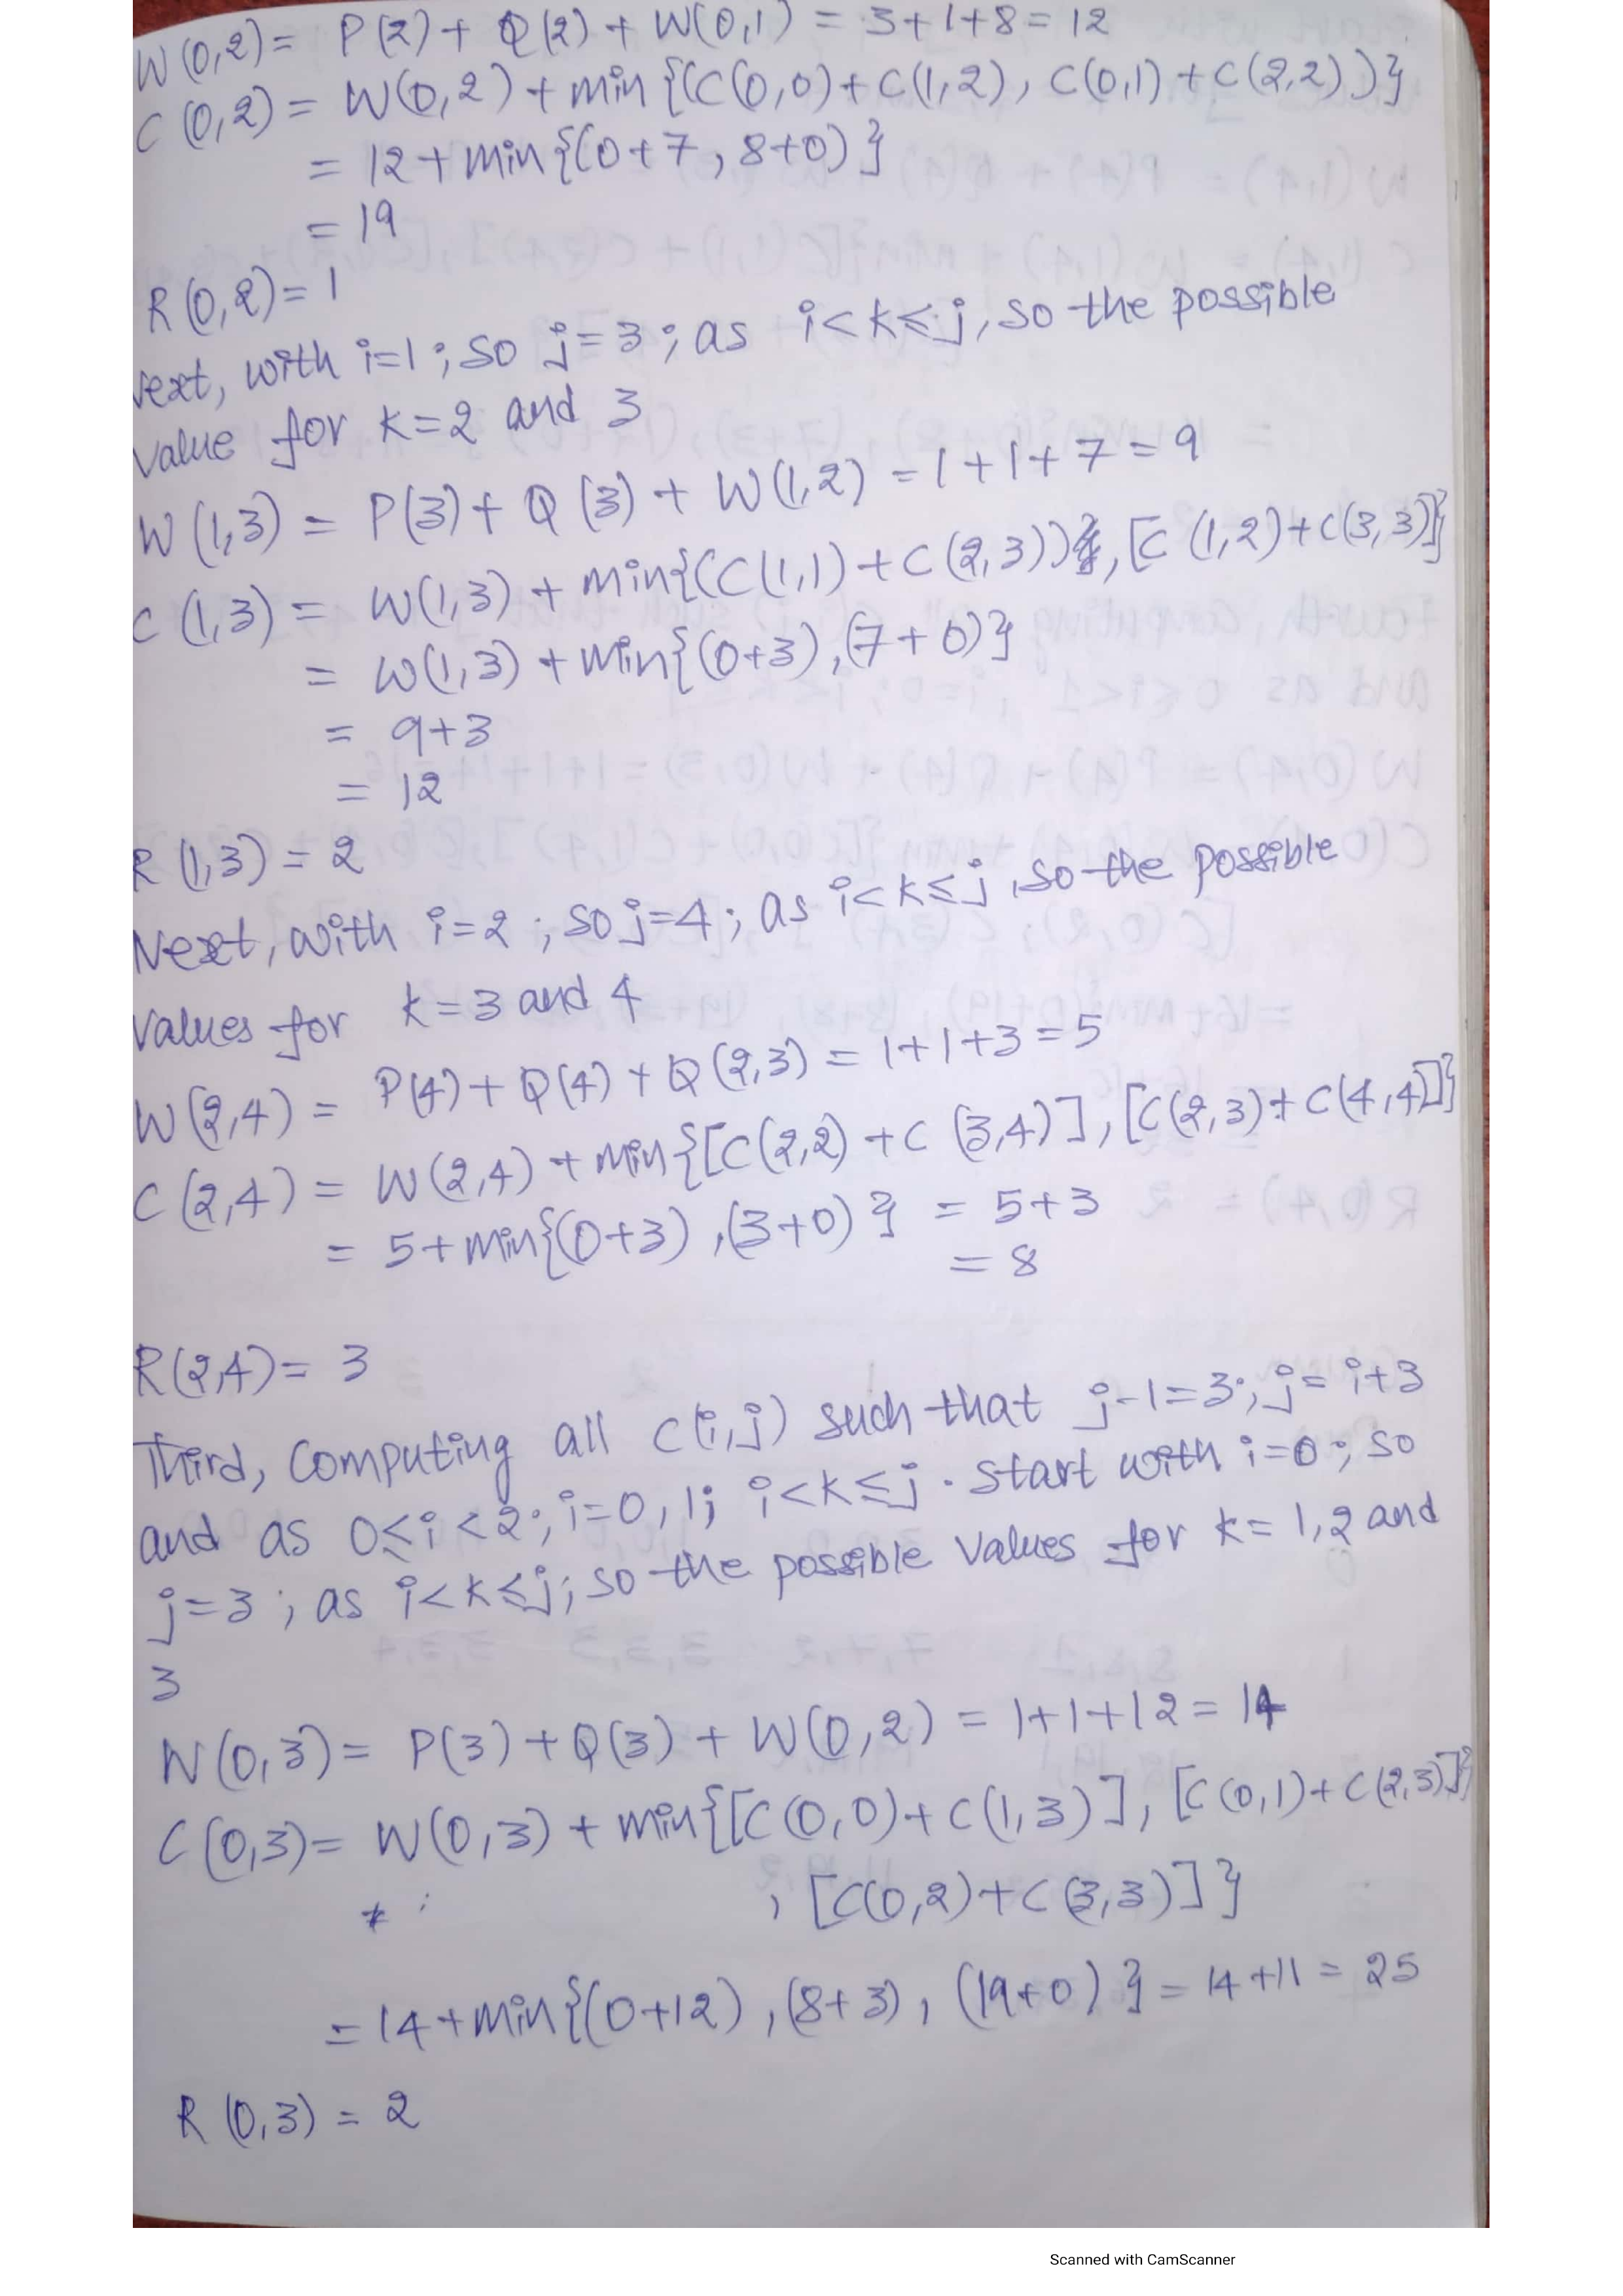 W(0,2) = P(2) + Q(2) + W(0,1) = 3+1+8 = 12
C(0,2) = W(0,2) + min{(C(0,0)+C(1,2), C(0,1)+C(2,2))}
= 12+min{(0+7, 8+0)}
= 19
R(0,2) = 1
Next, with i=1; so j=3; as i<k≤j, so the possible
value for k=2 and 3
W(1,3) = P(3)+ Q(3) + W(1,2) = 1+1+7 = 9
C(1,3) = W(1,3) + min{(C(1,1)+C(2,3)), [C(1,2)+C(3,3)]}
= W(1,3) + min{(0+3), (7+0)}
= 9+3
= 12
R(1,3) = 2
Next, with i=2; so j=4; as i<k≤j, so the possible
values for k=3 and 4
W(2,4) = P(4)+ Q(4) + Q(2,3) = 1+1+3 = 5
C(2,4) = W(2,4) + min{[C(2,2)+C(3,4)], [C(2,3)+C(4,4)]}
= 5+min{(0+3), (3+0)} = 5+3
= 8
R(2,4) = 3
Third, Computing all C(i,j) such that j-1=3; j= i+3
and as 0≤i<2; i=0,1; i<k≤j. start with i=0; so
j=3; as i<k≤j; so the possible values for k=1,2 and
3
W(0,3) = P(3)+Q(3) + W(0,2) = 1+1+12 = 14
C(0,3) = W(0,3) + min{[C(0,0)+C(1,3)], [C(0,1)+C(2,3)]}
, [C(0,2)+C(3,3)]}
= 14+min{(0+12), (8+3), (19+0)} = 14+11 = 25
R(0,3) = 2
Scanned with CamScanner